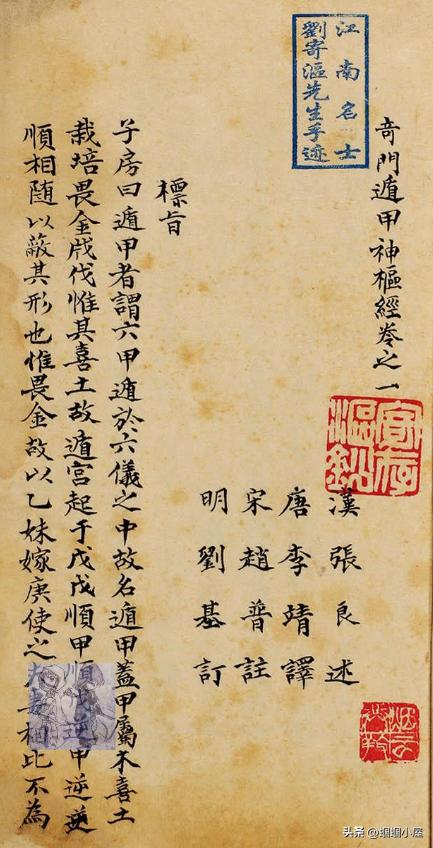 奇門遁甲神樞經卷之一
江南名士
劉寄漚先生手迹
漢張良述
唐李靖譯
宋趙普註
明劉基訂
標旨
子房曰遁甲者謂六甲遁於六儀之中故名遁甲蓋甲屬木喜土
栽培畏金戕伐惟其喜土故遁宮起于戊戊順甲順戊逆甲逆並
順相隨以蔽其形也惟畏金故以乙妹嫁庚使之夫妻相比不為
头条 @蝈蝈小屋